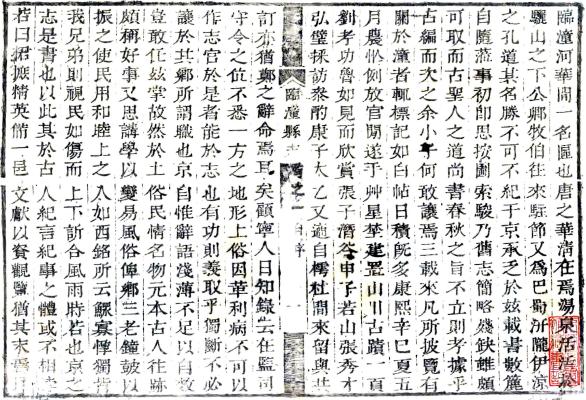 臨潼河華間一名區也唐之華清在焉湯泉活活於
驪山之下公卿牧伯往來駐節又為巴蜀汧隴伊涼
之孔道其名勝不可不紀于京承乏於玆載書數簏
自隨蒞事初即思按劃索駿乃舊志簡略殘缺雖頗
可取而古聖人之道尚書春秋之旨不立則考據乎
古編而次之余小子何敢讓焉三載來凡所披覽有
關於潼者輒標記如白帖日積旣多康熙辛巳夏五
月農忙例放官閒遂乎艸星埜建置山川古蹟一頁
劉孝功魯如見而欣賞張子潛谷申子若山張秀才
弘璧採訪叅酌康子太乙又過自樗杜間來留與共
臨潼縣志 卷之一 自序
訂亦猶鄭之辭命焉耳矣顧寧人日知錄云在監司
守令之位不悉一方之地形土俗因革利病不可以
作志官於是者能於志也有功則義取乎獨斷不必
讓於其鄉所謂職也京自惟辭語淺薄不足以自效
豈敢任玆掌故然於土俗民情名物元本古人往跡
頗稱好事又思講學以變易風俗俾鄉三老鐘鼓以
振之使民用和睦上之人如西銘所云鰥寡惸獨皆
我兄弟則視民如傷而上下訢合風雨時若也京之
志是書也以此其於古人紀言紀事之體或不相悖
若曰招摭精英備一邑文獻以資觀覽猶其末焉耳